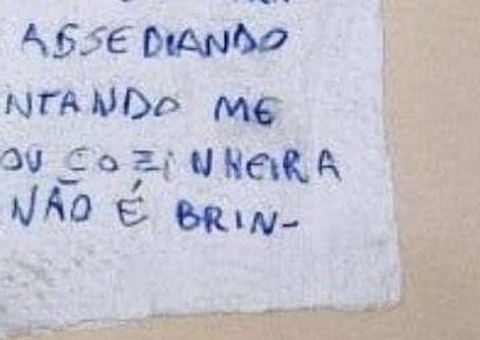 ASSEDIANDO
NTANDO ME
OU COZINHEIRA
NÃO É BRIN-